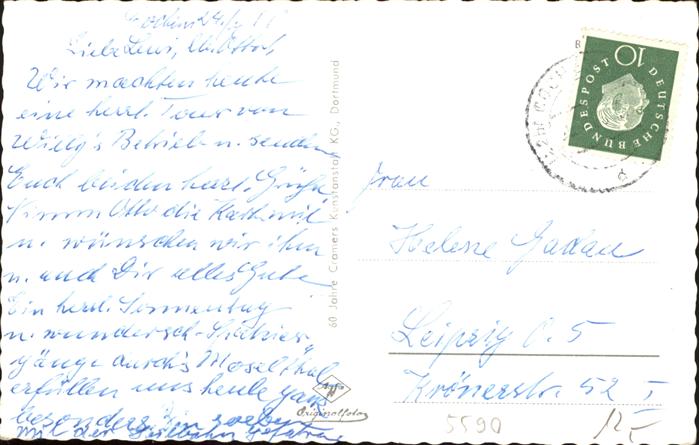 Liebe Leni, Otto,
Wir machten heute
eine herrl. Tour von
Willy's Betrieb u. senden
Euch beiden herzl. Grüße
Nimm Otto die Kath. mit
u. wünschen wir ihm
u. auch Dir alles Gute
Ein herrl. Sonnentag
u. wundersch. Spazier
gänge durch's Moselthal
erfüllen uns heute ganz
besonders
mit der Seilbahn
60 Jahre Cramers Kunstanstalt KG., Dortmund
Agfa
Originalfoto
10
DEUTSCHE BUNDESPOST
Frau
Helene Gadau
Leipzig O. 5
Krönerstr. 52 I
5590